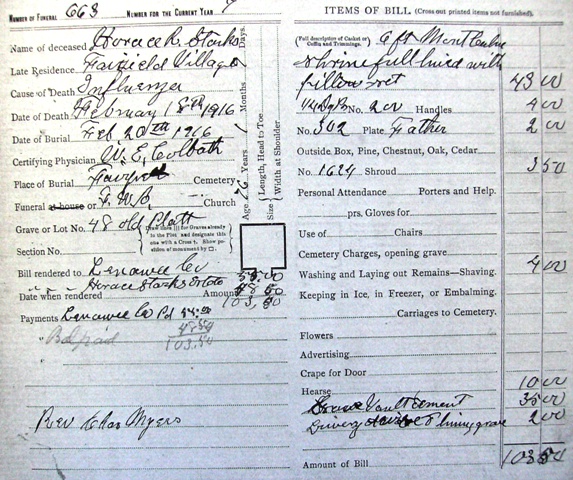 NUMBER OF FUNERAL 663 NUMBER FOR THE CURRENT YEAR 7
Name of deceased Horace R. Starks
Late Residence Fairfield Village
Cause of Death Influenza
Date of Death February 18th 1916
Date of Burial Feb 20th 1916
Certifying Physician W. E. Colbath
Place of Burial Cemetery
Funeral at house or F. W. B. Church
Grave or Lot No. 48 old Platt
Section No.
Draw lines ||| for Graves already
in the Plot and designate this
one with a Cross †. Show position
of monument by □.
Age 76 Years Months Days.
Size { Length, Head to Toe
Width at Shoulder
Bill rendered to Lenawee Co 55.00
" " " Horace Starks Estate 48 50
Date when rendered Amount 103,50
Payments Lenawee Co Pd 55.00
" Bal paid 48.50
103.50
Rev Chas Myers
ITEMS OF BILL. (Cross out printed items not furnished).
Full description of Casket or
Coffin and Trimmings. 6 ft
shrine full lined with
pillow set 43 00
No. 2 Handles 4 00
No. 302 Plate Father 2 00
Outside Box, Pine, Chestnut, Oak, Cedar
No. 1624 Shroud 3 50
Personal Attendance Porters and Help.
prs. Gloves for
Use of Chairs
Cemetery Charges, opening grave 4 00
Washing and Laying out Remains—Shaving.
Keeping in Ice, in Freezer, or Embalming.
Carriages to Cemetery.
Flowers
Advertising
Crape for Door
Hearse 10 00
Grave Vault cement 35 00
lining grave 2 00
Amount of Bill 103 50